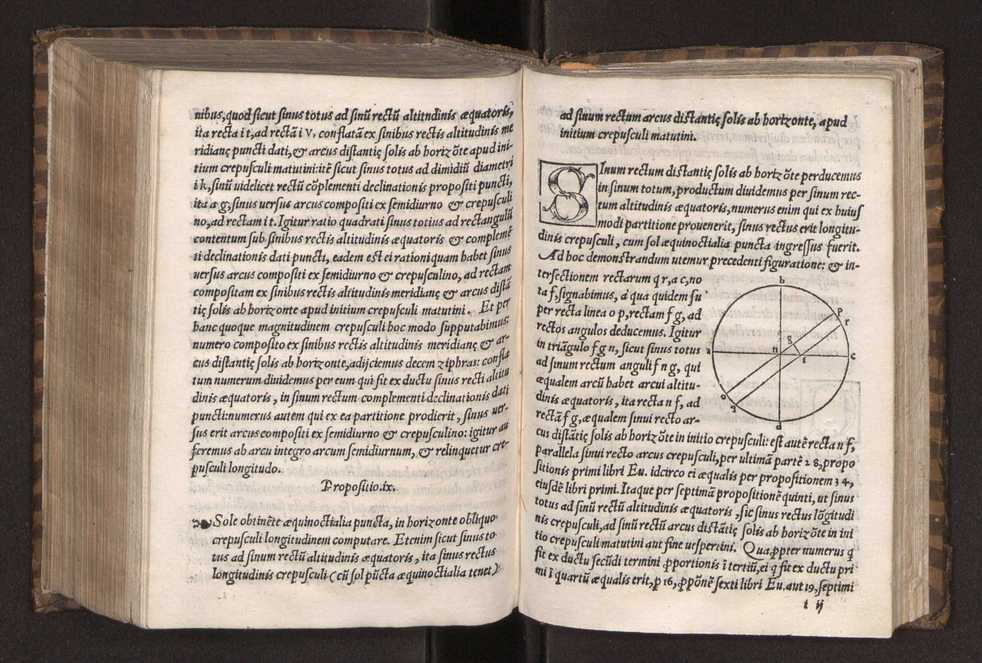 nibus, quod sicut sinus totus ad sinū rectū altitudinis æquatoris,
ita recta i t, ad rectā i v. conflatā ex sinibus rectis altitudinis me
ridianę puncti dati, & arcus distantię solis ab horizōte apud ini-
tium crepusculi matutini: itē sicut sinus totus ad dimidiū diametri
i k, sinū uidelicet rectū cōplementi declinationis propositi puncti,
ita a g, sinus versus arcus compositi ex semidiurno & crepusculi
no, ad rectam i t. Igitur ratio quadrati sinus totius ad rectangulū
contentum sub sinibus rectis altitudinis æquatoris & complemē
ti declinationis dati puncti, eadem est ei rationi quam habet sinus
versus arcus compositi ex semidiurno & crepusculino, ad rectam
compositam ex sinibus rectis altitudinis meridianę & arcus distā
tię solis ab horizōte apud initium crepusculi matutini. Et per
hanc quoque magnitudinem crepusculi hoc modo supputabimus:
numero composito ex sinibus rectis altitudinis meridianę & ar-
cus distantię solis ab horizonte, adijciemus decem ziphras: confla
tum numerum diuidemus per eum qui fit ex ductu sinus recti altitu
dinis æquatoris, in sinum rectum complementi declinationis dati
puncti: numerus autem qui ex ea partitione prodierit, sinus ver-
sus erit arcus compositi ex semidiurno & crepusculino: igitur au
feremus ab arcu integro arcum semidiurnum, & relinquetur cre-
pusculi longitudo.
Propositio.ix.
Sole obtinēte æquinoctialia puncta, in horizonte obliquo
crepusculi longitudinem computare. Etenim sicut sinus to
tus ad sinum rectū altitudinis æquatoris, ita sinus rectus
longitudinis crepusculi (cū sol pūcta æquinoctialia tenet)
ad sinum rectum arcus distantię solis ab horizonte, apud
initium crepusculi matutini.
SInum rectum distantię solis ab horizōte perducemus
in sinum totum, productum diuidemus per sinum rec-
tum altitudinis æquatoris, numerus enim qui ex huius
modi partitione prouenerit, sinus rectus erit longitu-
dinis crepusculi, cum sol æquinoctialia puncta ingressus fuerit.
Ad hoc demonstrandum utemur precedenti figuratione: & in-
tersectionem rectarum q r, a c, no
ta f, signabimus, à qua quidem su
per recta linea o p, rectam f g, ad
rectos angulos deducemus. Igitur
in triāgulo f g n, sicut sinus totus
ad sinum rectum anguli f n g, qui
æqualem arcū habet arcui altitu-
dinis æquatoris, ita recta n f, ad
rectā f g, æqualem sinui recto ar-
cus distātię solis ab horizōte in initio crepusculi: est autē recta n f,
parallela sinui recto arcus crepusculi, per ultimā partē 28, propo
sitionis primi libri Eu. idcirco ei æqualis per propositionem 34,
eiusdē libri primi. Itaque per septimā propositionē quinti, ut sinus
totus ad sinū rectū altitudinis æquatoris, sic sinus rectus lōgitudi
nis crepusculi, ad sinū rectū arcus distātię solis ab horizōte in ini
tio crepusculi matutini aut fine uespertini. Quapꝓpter numerus q
fit ex ductu secūdi termini ꝓportionis ī tertiū, ei q fit ex ductu pri
mi ī quartū æqualis erit, ꝑ 16, ꝓpōnē sexti libri Eu. aut 19, septimi
t ij
b
p
r
g
a
n
f
c
o
q
d